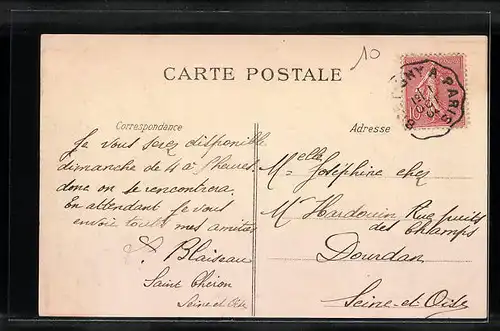 10
CARTE POSTALE
Correspondance
Je vous serez disponible
dimanche de 4 à heures
donc on se rencontrera
En attendant Je vous
envoie toute mes amitiés
Blaiseau
Saint Chéron
Seine et Oise
Adresse
Melle Joséphine chez
Mr Hardouin Rue puits
des Champs
Dourdan
Seine-et-Oise
A PARIS
10